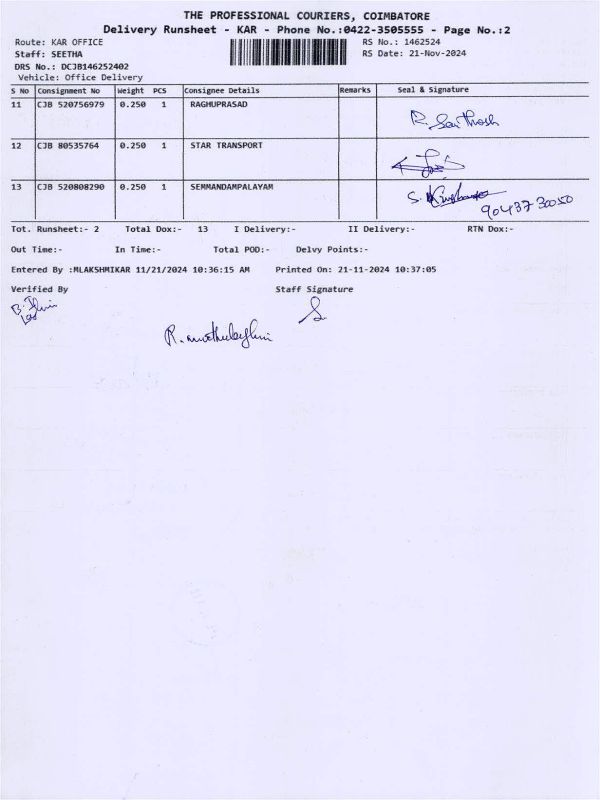 THE PROFESSIONAL COURIERS, COIMBATORE
Delivery Runsheet - KAR - Phone No.:0422-3505555 - Page No.:2
Route: KAR OFFICE RS No.: 1462524
Staff: SEETHA RS Date: 21-Nov-2024
DRS No.: DCJB146252402
Vehicle: Office Delivery
S No Consignment No Weight PCS Consignee Details Remarks Seal & Signature
11 CJB 520756979 0.250 1 RAGHUPRASAD
R. Santhosh
12 CJB 80535764 0.250 1 STAR TRANSPORT
13 CJB 520808290 0.250 1 SEMMANDAMPALAYAM
S.
90437 30050
Tot. Runsheet:- 2 Total Dox:- 13 I Delivery:- II Delivery:- RTN Dox:-
Out Time:- In Time:- Total POD:- Delvy Points:-
Entered By :MLAKSHMIKAR 11/21/2024 10:36:15 AM Printed On: 21-11-2024 10:37:05
Verified By Staff Signature
B.
R.